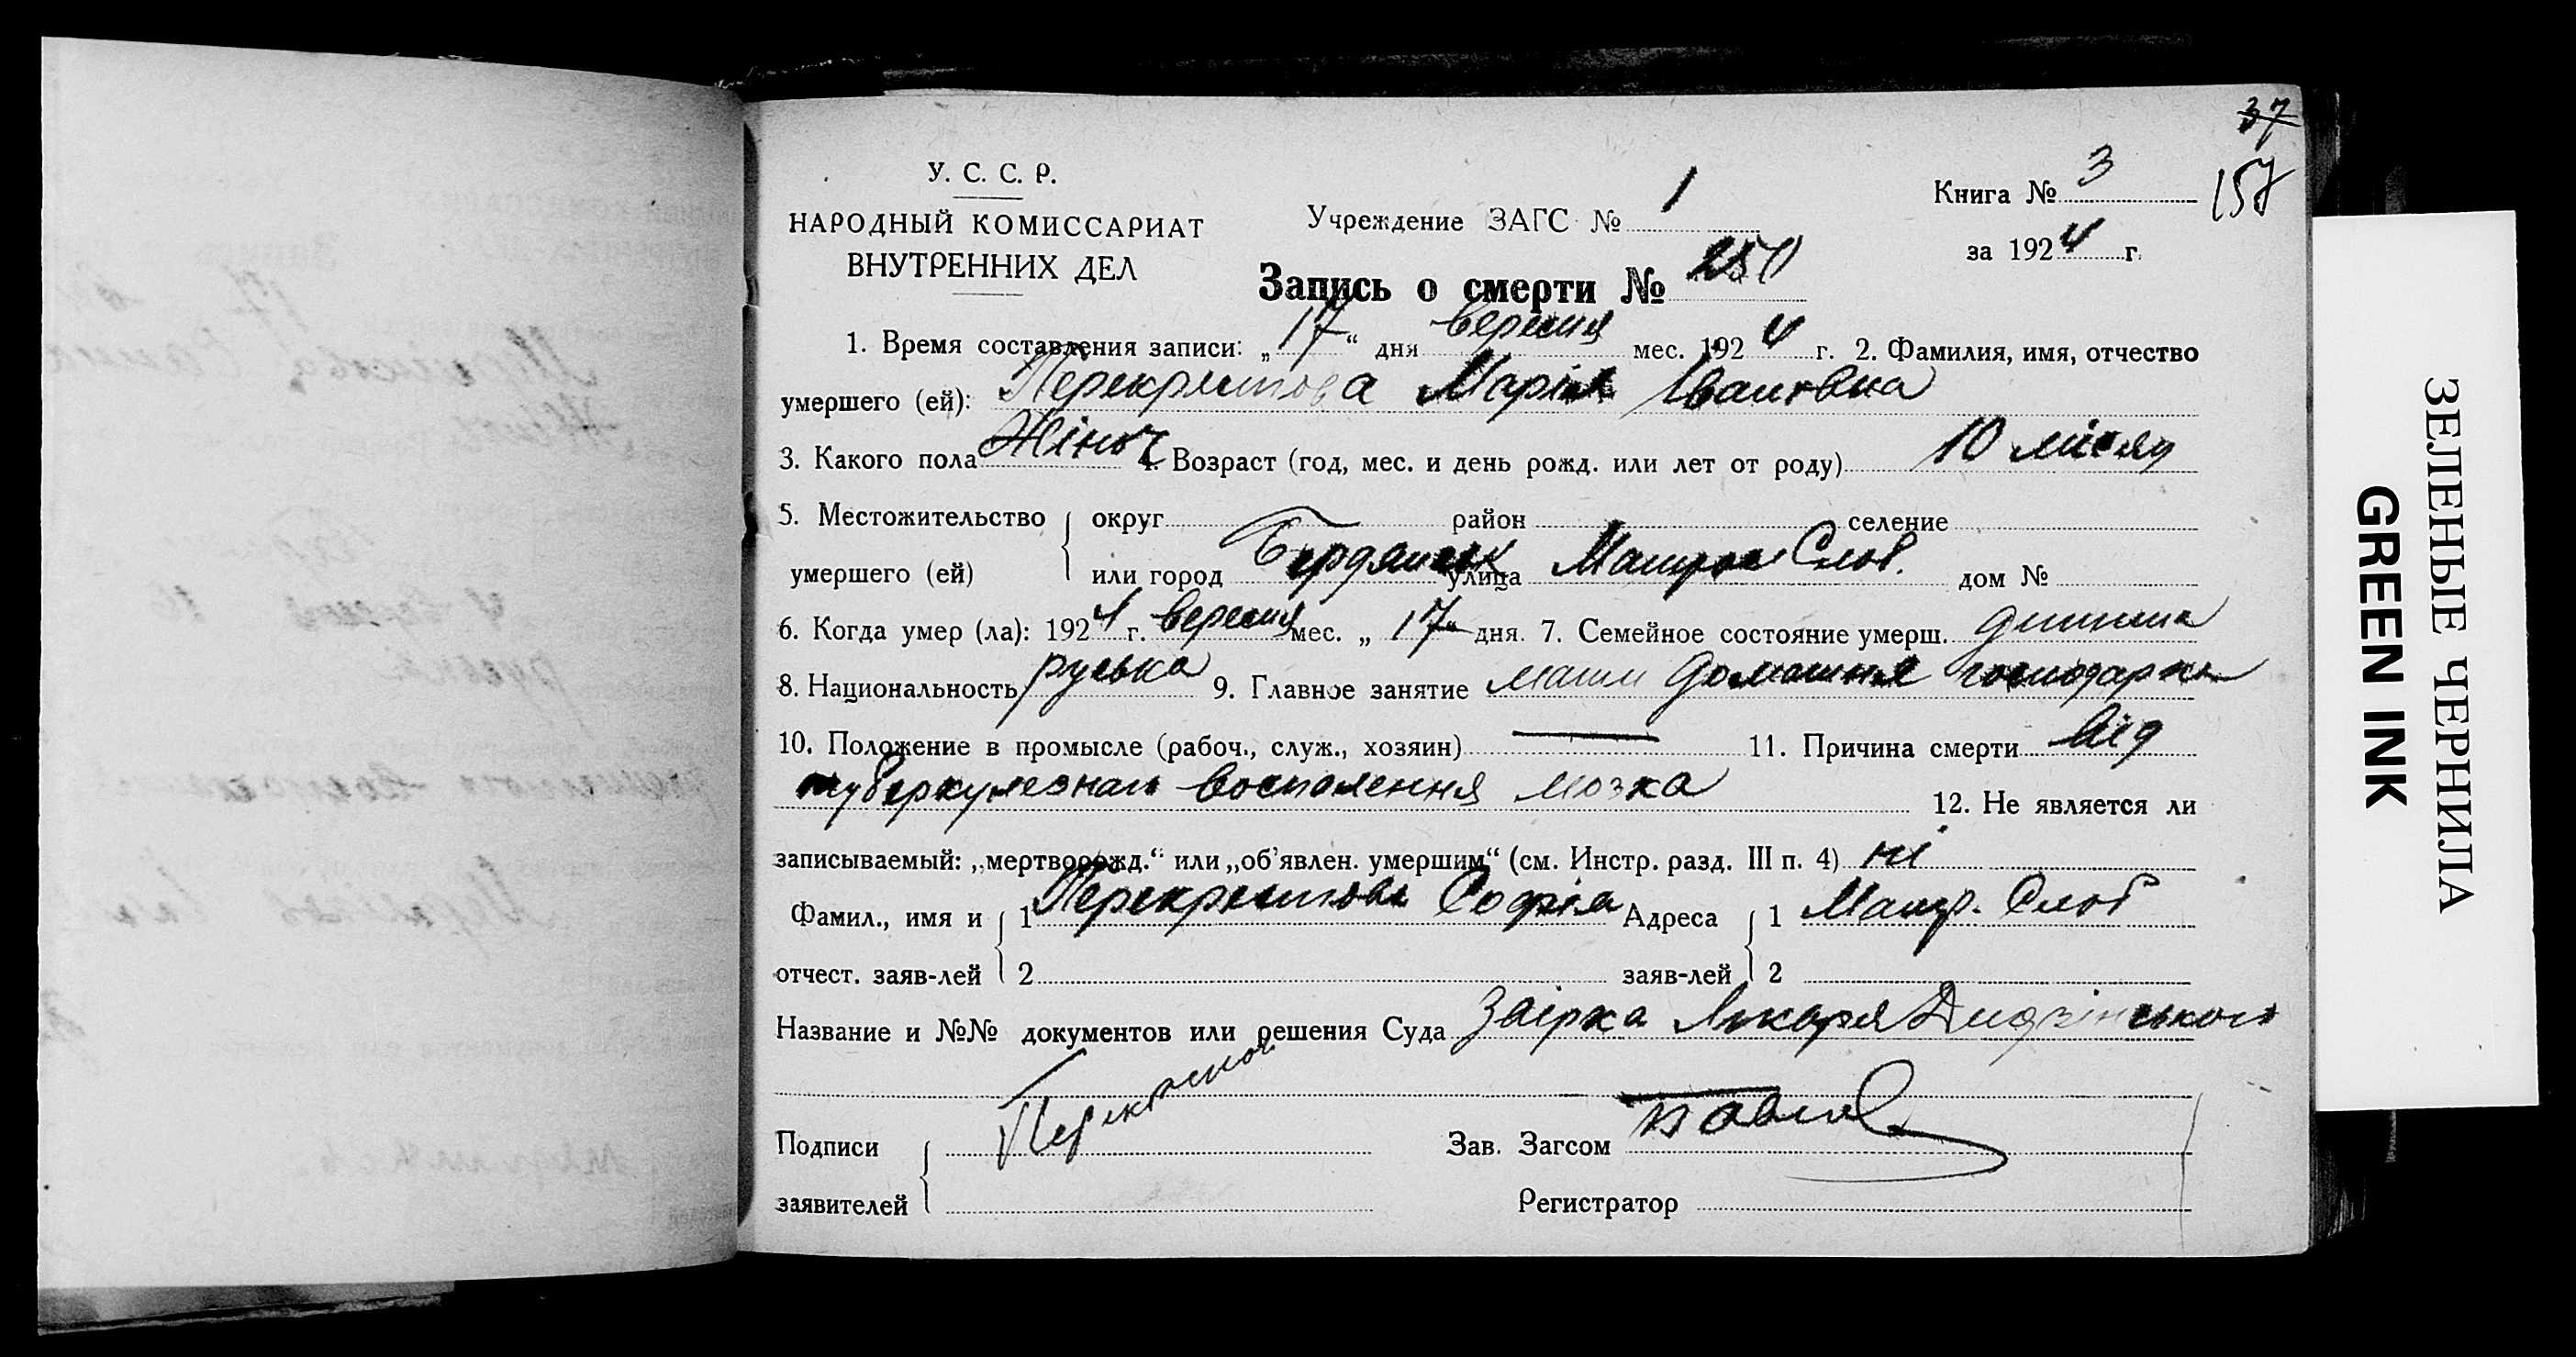 37
157
У. С. С. Р.
НАРОДНЫЙ КОМИССАРИАТ
ВНУТРЕННИХ ДЕЛ
Учреждение ЗАГС № 1
Книга № 3
за 1924 г.
Запись о смерти № 250
1. Время составления записи: „17“ дня вересня мес. 1924 г. 2. Фамилия, имя, отчество
умершего (ей): Перекрестова Марія Івановна
3. Какого пола Жіноч 4. Возраст (год, мес. и день рожд. или лет от роду) 10 місяц
5. Местожительство округ район селение
умершего (ей) или город Бердянськ улица Матрос Слоб. дом №
6. Когда умер (ла): 1924 г. вересня мес. „17“ дня. 7. Семейное состояние умерш. дитина
8. Национальность руська 9. Главное занятие мати домашня господарка
10. Положение в промысле (рабоч., служ., хозяин) — 11. Причина смерти від
туберкулезнаго воспалення мозка
12. Не является ли
записываемый: „мертворожд.“ или „об'явлен. умершим“ (см. Инстр. разд. III п. 4) ні
Фамил., имя и 1 Перекрестова Софія Адреса 1 Матр. Слоб
отчест. заяв-лей 2 заяв-лей 2
Название и №№ документов или решения Суда Звірка Лікаря
Подписи Зав. Загсом
заявителей Регистратор
ЗЕЛЕНЫЕ ЧЕРНИЛА
GREEN INK